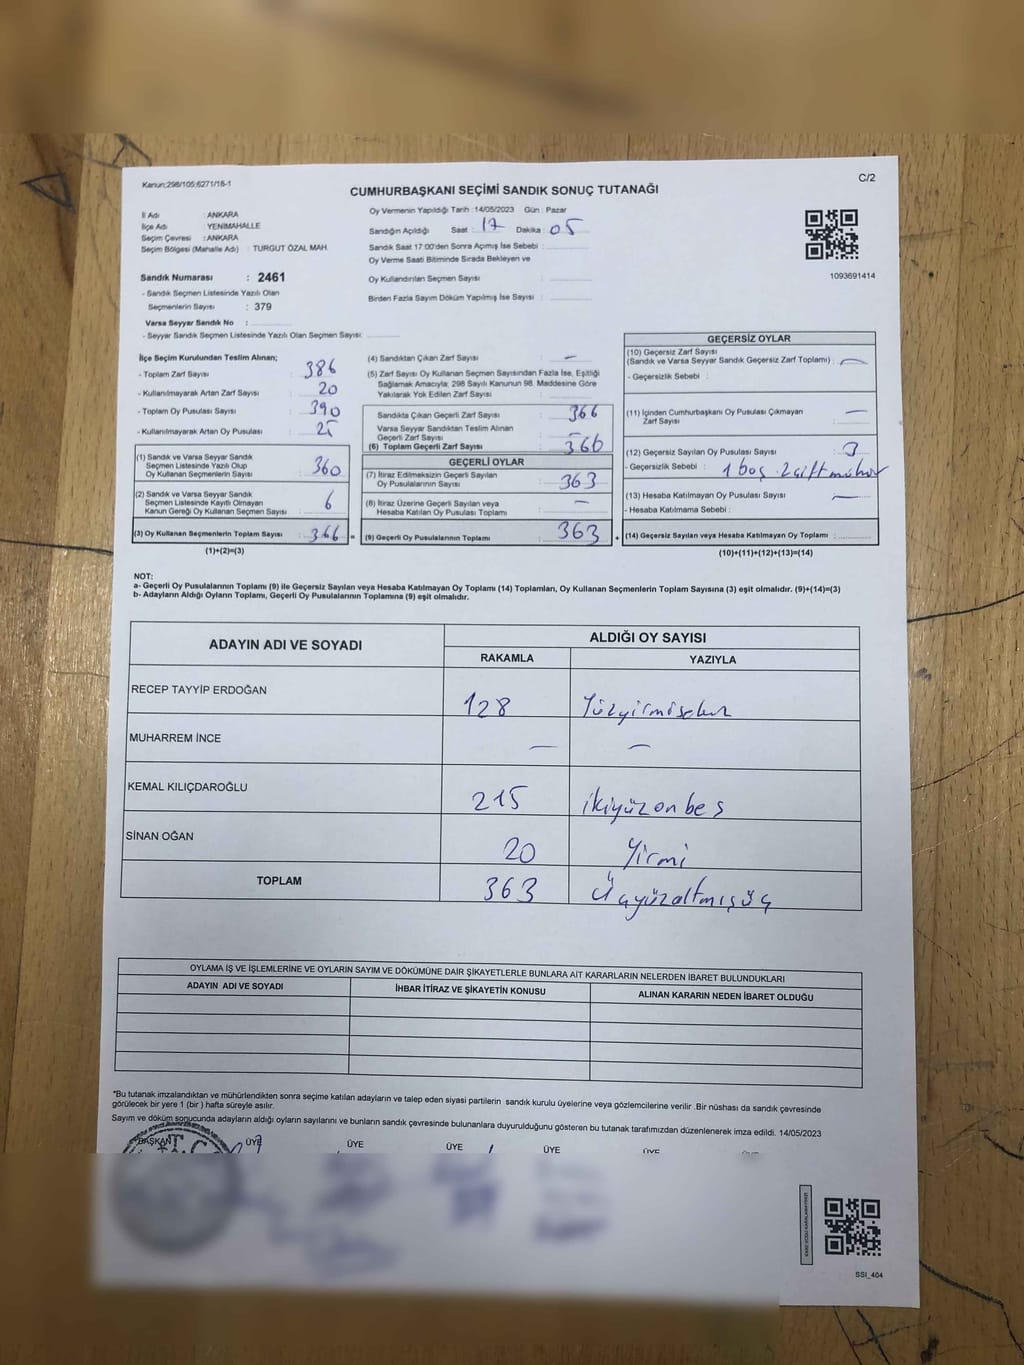 Kanun:298/105;6271/16-1
C/2
CUMHURBAŞKANI SEÇİMİ SANDIK SONUÇ TUTANAĞI
İl Adı : ANKARA
İlçe Adı : YENİMAHALLE
Seçim Çevresi : ANKARA
Seçim Bölgesi (Mahalle Adı) : TURGUT ÖZAL MAH.
Sandık Numarası : 2461
- Sandık Seçmen Listesinde Yazılı Olan
Seçmenlerin Sayısı : 379
Varsa Seyyar Sandık No :
- Seyyar Sandık Seçmen Listesinde Yazılı Olan Seçmen Sayısı:
Oy Vermenin Yapıldığı Tarih :14/05/2023 Gün : Pazar
Sandığın Açıldığı Saat : 17 Dakika : 05
Sandık Saat 17:00'den Sonra Açımış İse Sebebi :
Oy Verme Saati Bitiminde Sırada Bekleyen ve
Oy Kullandırılan Seçmen Sayısı :
Birden Fazla Sayım Döküm Yapılmış İse Sayısı :
1093691414
İlçe Seçim Kurulundan Teslim Alınan;
- Toplam Zarf Sayısı : 386
- Kullanılmayarak Artan Zarf Sayısı : 20
- Toplam Oy Pusulası Sayısı : 390
- Kullanılmayarak Artan Oy Pusulası :
(1) Sandık ve Varsa Seyyar Sandık
Seçmen Listesinde Yazılı Olup
Oy Kullanan Seçmenlerin Sayısı : 360
(2) Sandık ve Varsa Seyyar Sandık
Seçmen Listesinde Kayıtlı Olmayan
Kanun Gereği Oy Kullanan Seçmen Sayısı : 6
(3) Oy Kullanan Seçmenlerin Toplam Sayısı : 366 =
(1)+(2)=(3)
(4) Sandıktan Çıkan Zarf Sayısı : —
(5) Zarf Sayısı Oy Kullanan Seçmen Sayısından Fazla İse, Eşitliği
Sağlamak Amacıyla; 298 Sayılı Kanunun 98. Maddesine Göre
Yakılarak Yok Edilen Zarf Sayısı :
Sandıkta Çıkan Geçerli Zarf Sayısı : 366
Varsa Seyyar Sandıktan Teslim Alınan
Geçerli Zarf Sayısı : —
(6) Toplam Geçerli Zarf Sayısı : 366
GEÇERLİ OYLAR
(7) İtiraz Edilmeksizin Geçerli Sayılan
Oy Pusulalarının Sayısı : 363
(8) İtiraz Üzerine Geçerli Sayılan veya
Hesaba Katılan Oy Pusulası Toplamı : —
(9) Geçerli Oy Pusulalarının Toplamı : 363 +
GEÇERSİZ OYLAR
(10) Geçersiz Zarf Sayısı
(Sandık ve Varsa Seyyar Sandık Geçersiz Zarf Toplamı) : —
- Geçersizlik Sebebi :
(11) İçinden Cumhurbaşkanı Oy Pusulası Çıkmayan
Zarf Sayısı : —
(12) Geçersiz Sayılan Oy Pusulası Sayısı : 3
- Geçersizlik Sebebi : 1 boş 2 çift mühür
(13) Hesaba Katılmayan Oy Pusulası Sayısı : —
- Hesaba Katılmama Sebebi :
(14) Geçersiz Sayılan veya Hesaba Katılmayan Oy Toplamı :
(10)+(11)+(12)+(13)=(14)
NOT:
a- Geçerli Oy Pusulalarının Toplamı (9) ile Geçersiz Sayılan veya Hesaba Katılmayan Oy Toplamı (14) Toplamları, Oy Kullanan Seçmenlerin Toplam Sayısına (3) eşit olmalıdır. (9)+(14)=(3)
b- Adayların Aldığı Oyların Toplamı, Geçerli Oy Pusulalarının Toplamına (9) eşit olmalıdır.
ADAYIN ADI VE SOYADI
ALDIĞI OY SAYISI
RAKAMLA YAZIYLA
RECEP TAYYİP ERDOĞAN 128 Yüzyirmisekiz
MUHARREM İNCE — —
KEMAL KILIÇDAROĞLU 215 ikiyüzonbeş
SİNAN OĞAN 20 Yirmi
TOPLAM 363 Üçyüzaltmışüç
OYLAMA İŞ VE İŞLEMLERİNE VE OYLARIN SAYIM VE DÖKÜMÜNE DAİR ŞİKAYETLERLE BUNLARA AİT KARARLARIN NELERDEN İBARET BULUNDUKLARI
ADAYIN ADI VE SOYADI İHBAR İTİRAZ VE ŞİKAYETİN KONUSU ALINAN KARARIN NEDEN İBARET OLDUĞU
*Bu tutanak imzalandıktan ve mühürlendikten sonra seçime katılan adayların ve talep eden siyasi partilerin sandık kurulu üyelerine veya gözlemcilerine verilir .Bir nüshası da sandık çevresinde
görülecek bir yere 1 (bir ) hafta süreyle asılır.
Sayım ve döküm sonucunda adayların aldığı oyların sayılarını ve bunların sandık çevresinde bulunanlara duyurulduğunu gösteren bu tutanak tarafımızdan düzenlenerek imza edildi. 14/05/2023
BAŞKAN ÜYE ÜYE ÜYE ÜYE
T.C.
SSI_404